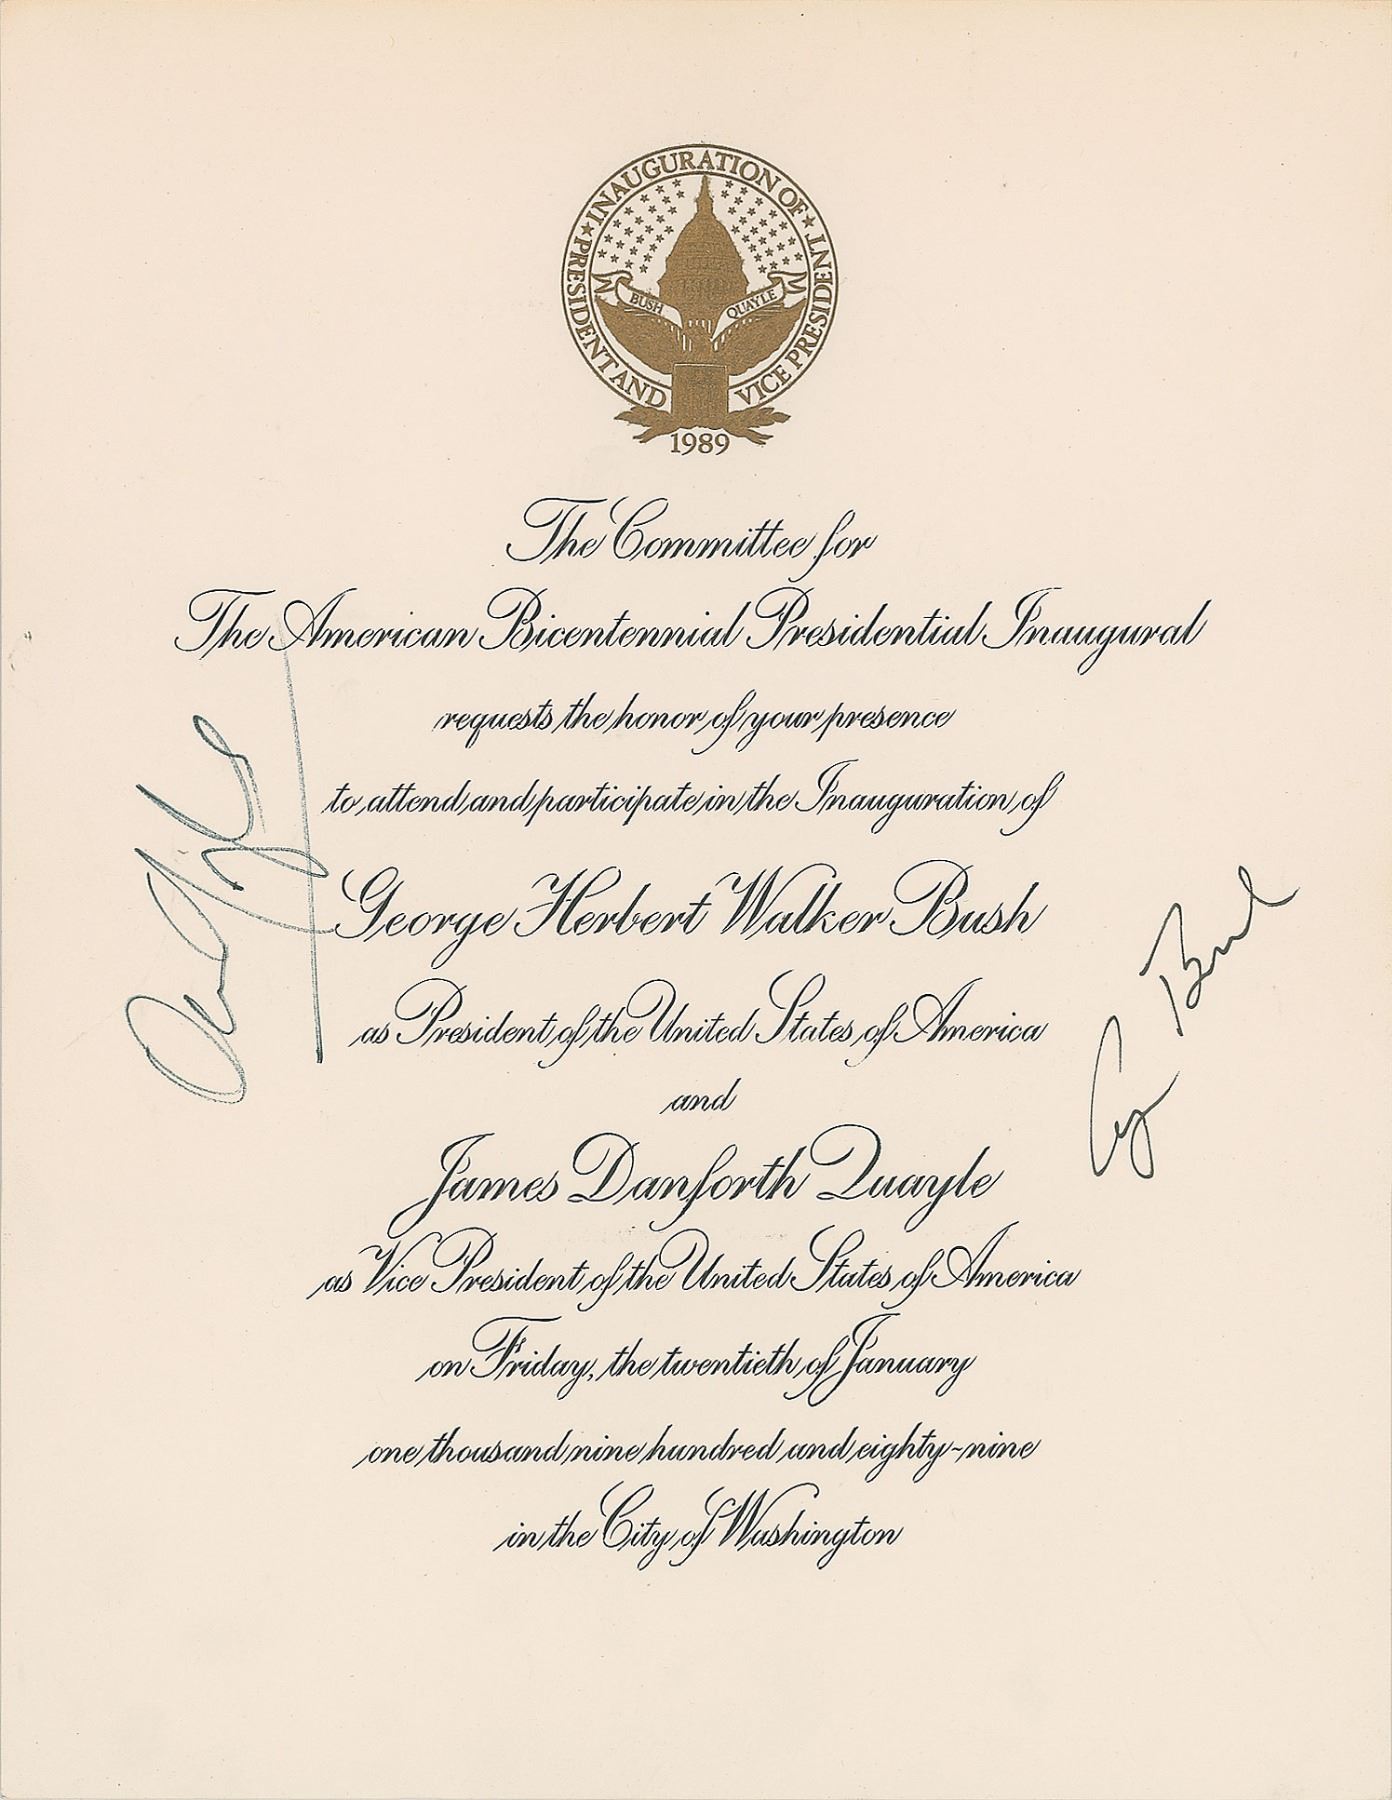 ★ INAUGURATION OF ★
PRESIDENT AND VICE PRESIDENT
BUSH QUAYLE
1989
The Committee for
The American Bicentennial Presidential Inaugural
requests the honor of your presence
to attend and participate in the Inauguration of
George Herbert Walker Bush
as President of the United States of America
and
James Danforth Quayle
as Vice President of the United States of America
on Friday, the twentieth of January
one thousand nine hundred and eighty~nine
in the City of Washington
Bush